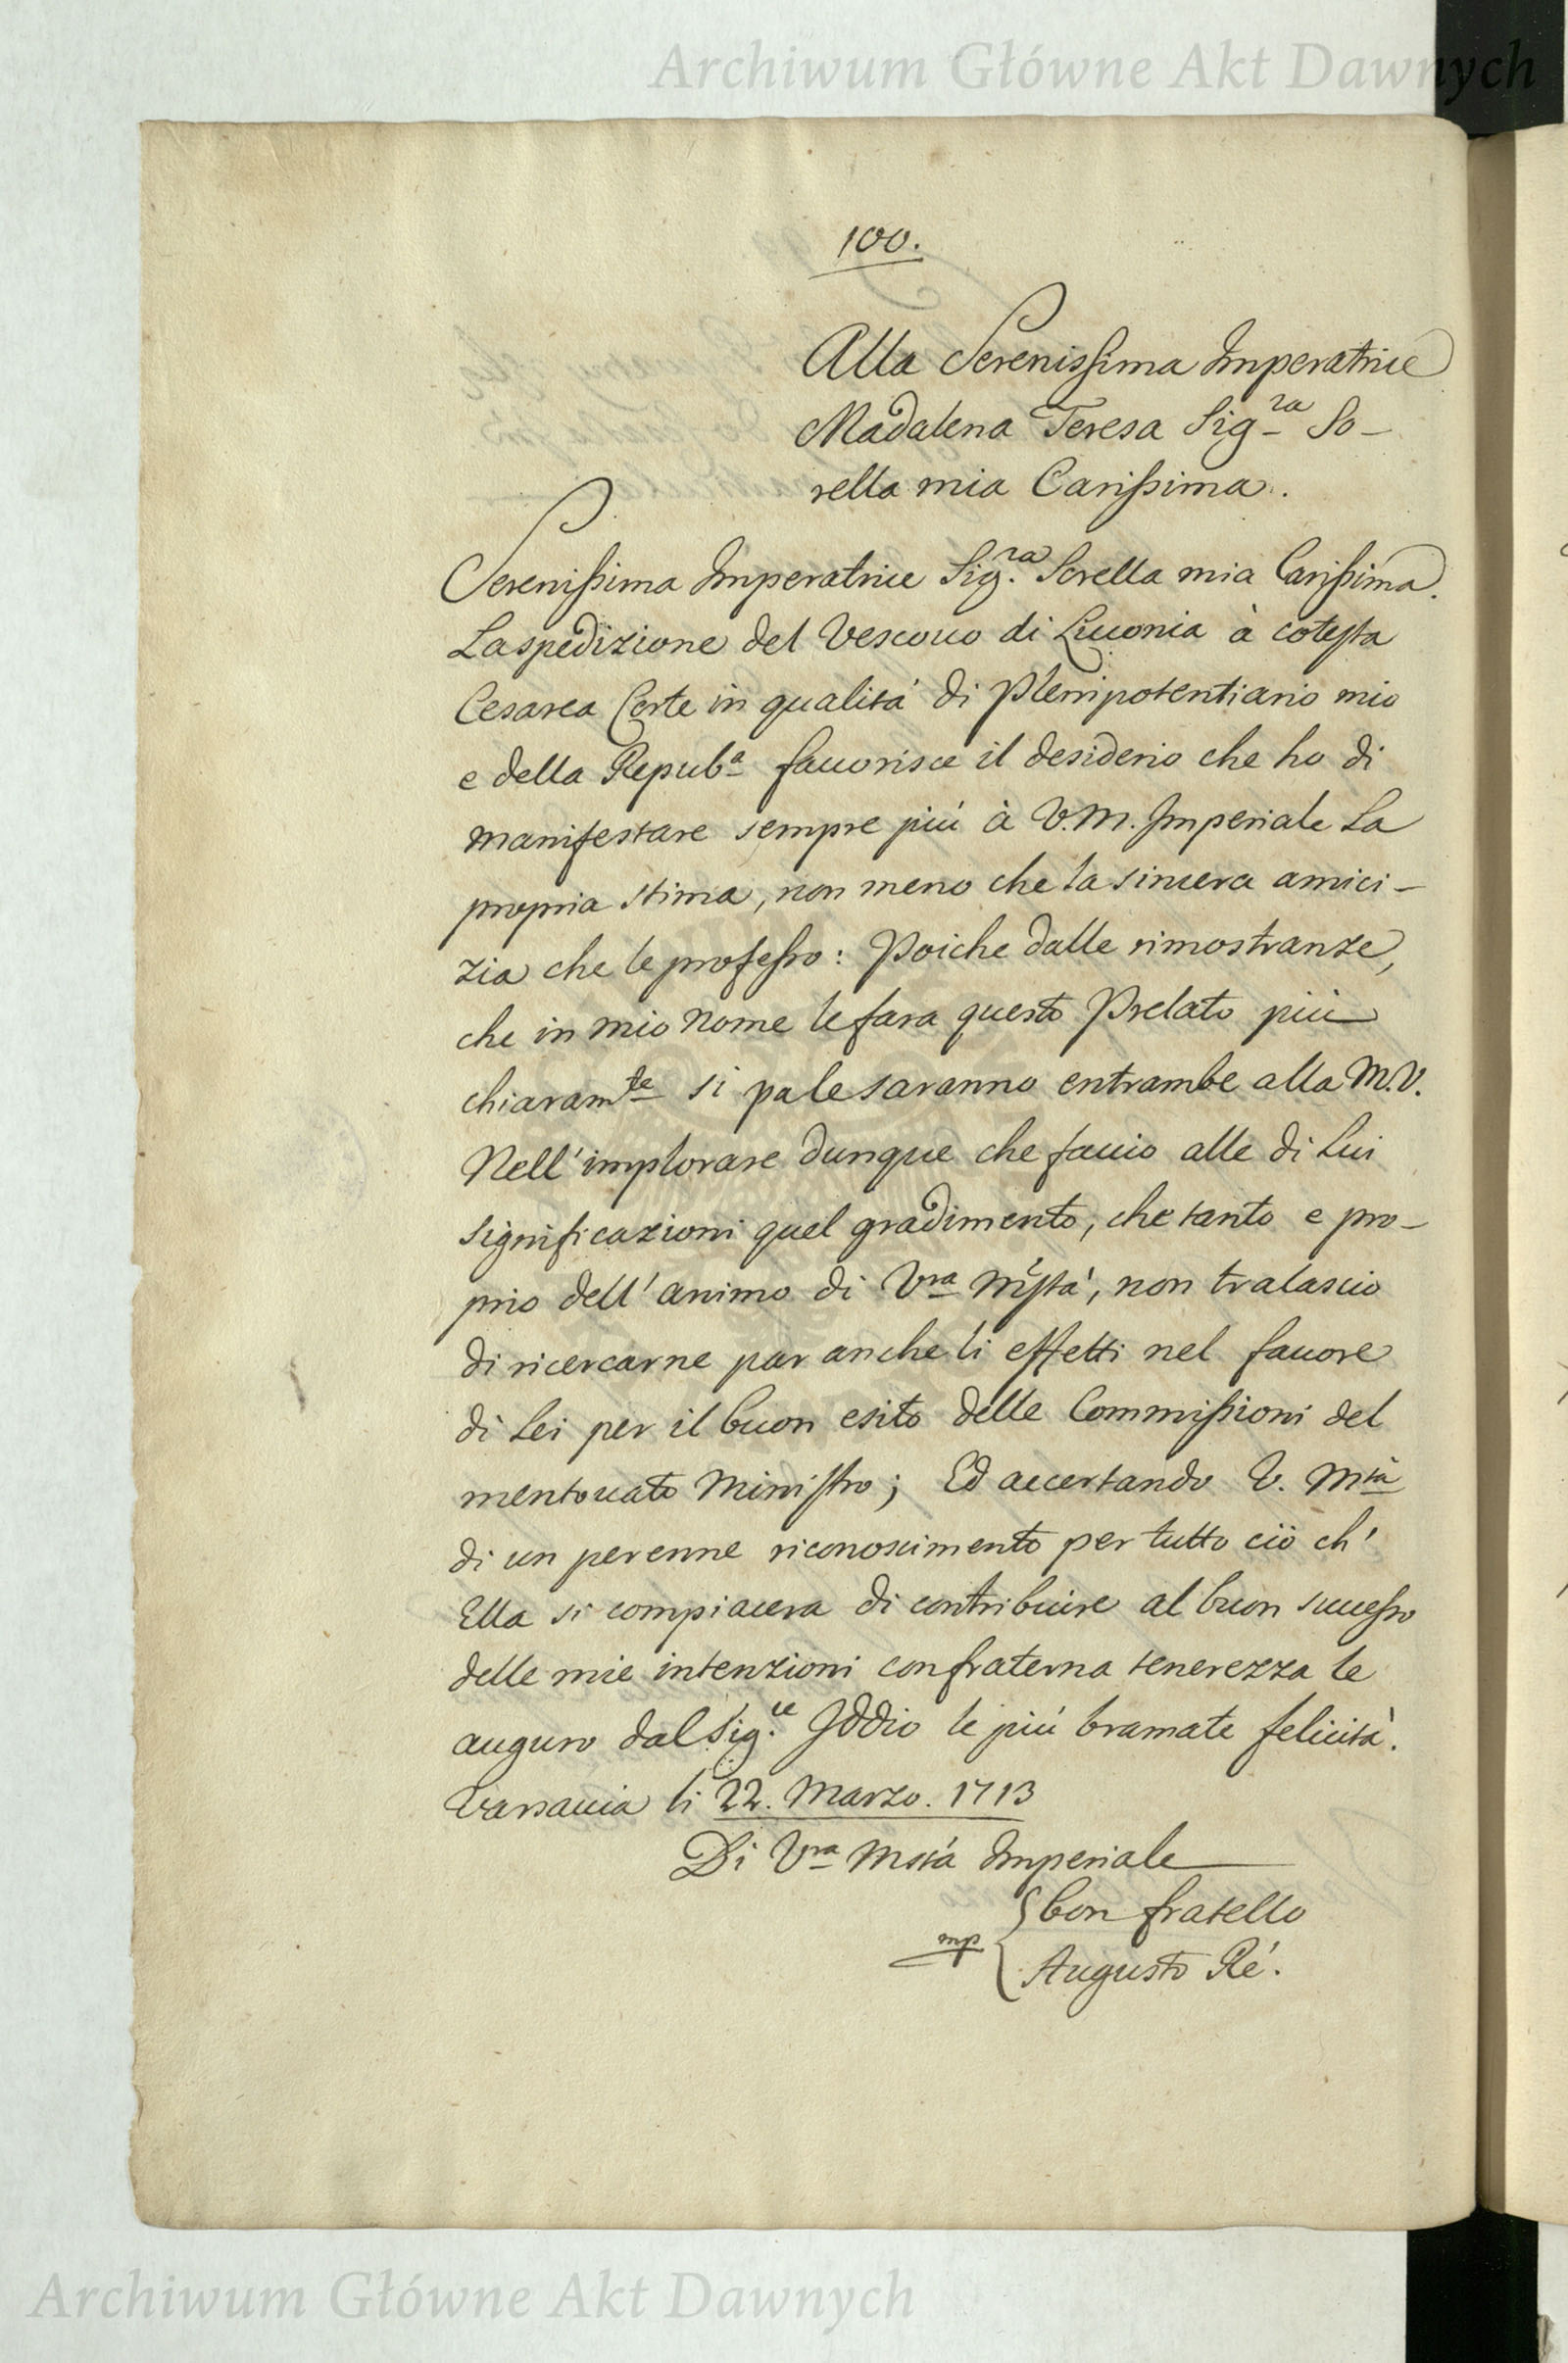 Archiwum Główne Akt Dawnych
100.
Alla Serenissima Imperatrice
Madalena Teresa Sig.ra So-
rella mia Carissima.
Serenissima Imperatrice Sig.ra Sorella mia Carissima.
La spedizione del Vescouo di Liuonia à cotesta
Cesarea Corte in qualità di Plenipotentiario mio
e della Repub.a fauorisce il desiderio che ho di
manifestare sempre più à V.M. Imperiale La
propria stima, non meno che la sincera amici-
zia che le professo: Poiche dalle rimostranze,
che in mio Nome le fara questo Prelato più
chiaram.te si palesaranno entrambe alla M.V.
Nell'implorare dunque che faccio alle di Lui
significazioni quel gradimento, che tanto e pro-
prio dell'animo di V.ra M.stà, non tralascio
di ricercarne par anche li effetti nel fauore
di Lei per il buon esito delle Commissioni del
mentouato Ministro; Ed accertando V. M.tà
di un perenne riconoscimento per tutto ciò ch'
Ella si compiacera di contribuire al buon successo
delle mie intenzioni con fraterna tenerezza le
auguro dal Sig.re Iddio le più bramate felicità.
Varsauia li 22. Marzo. 1713
Di V.ra Mstà Imperiale
bon fratello
mp
Augusto Ré.
Archiwum Główne Akt Dawnych